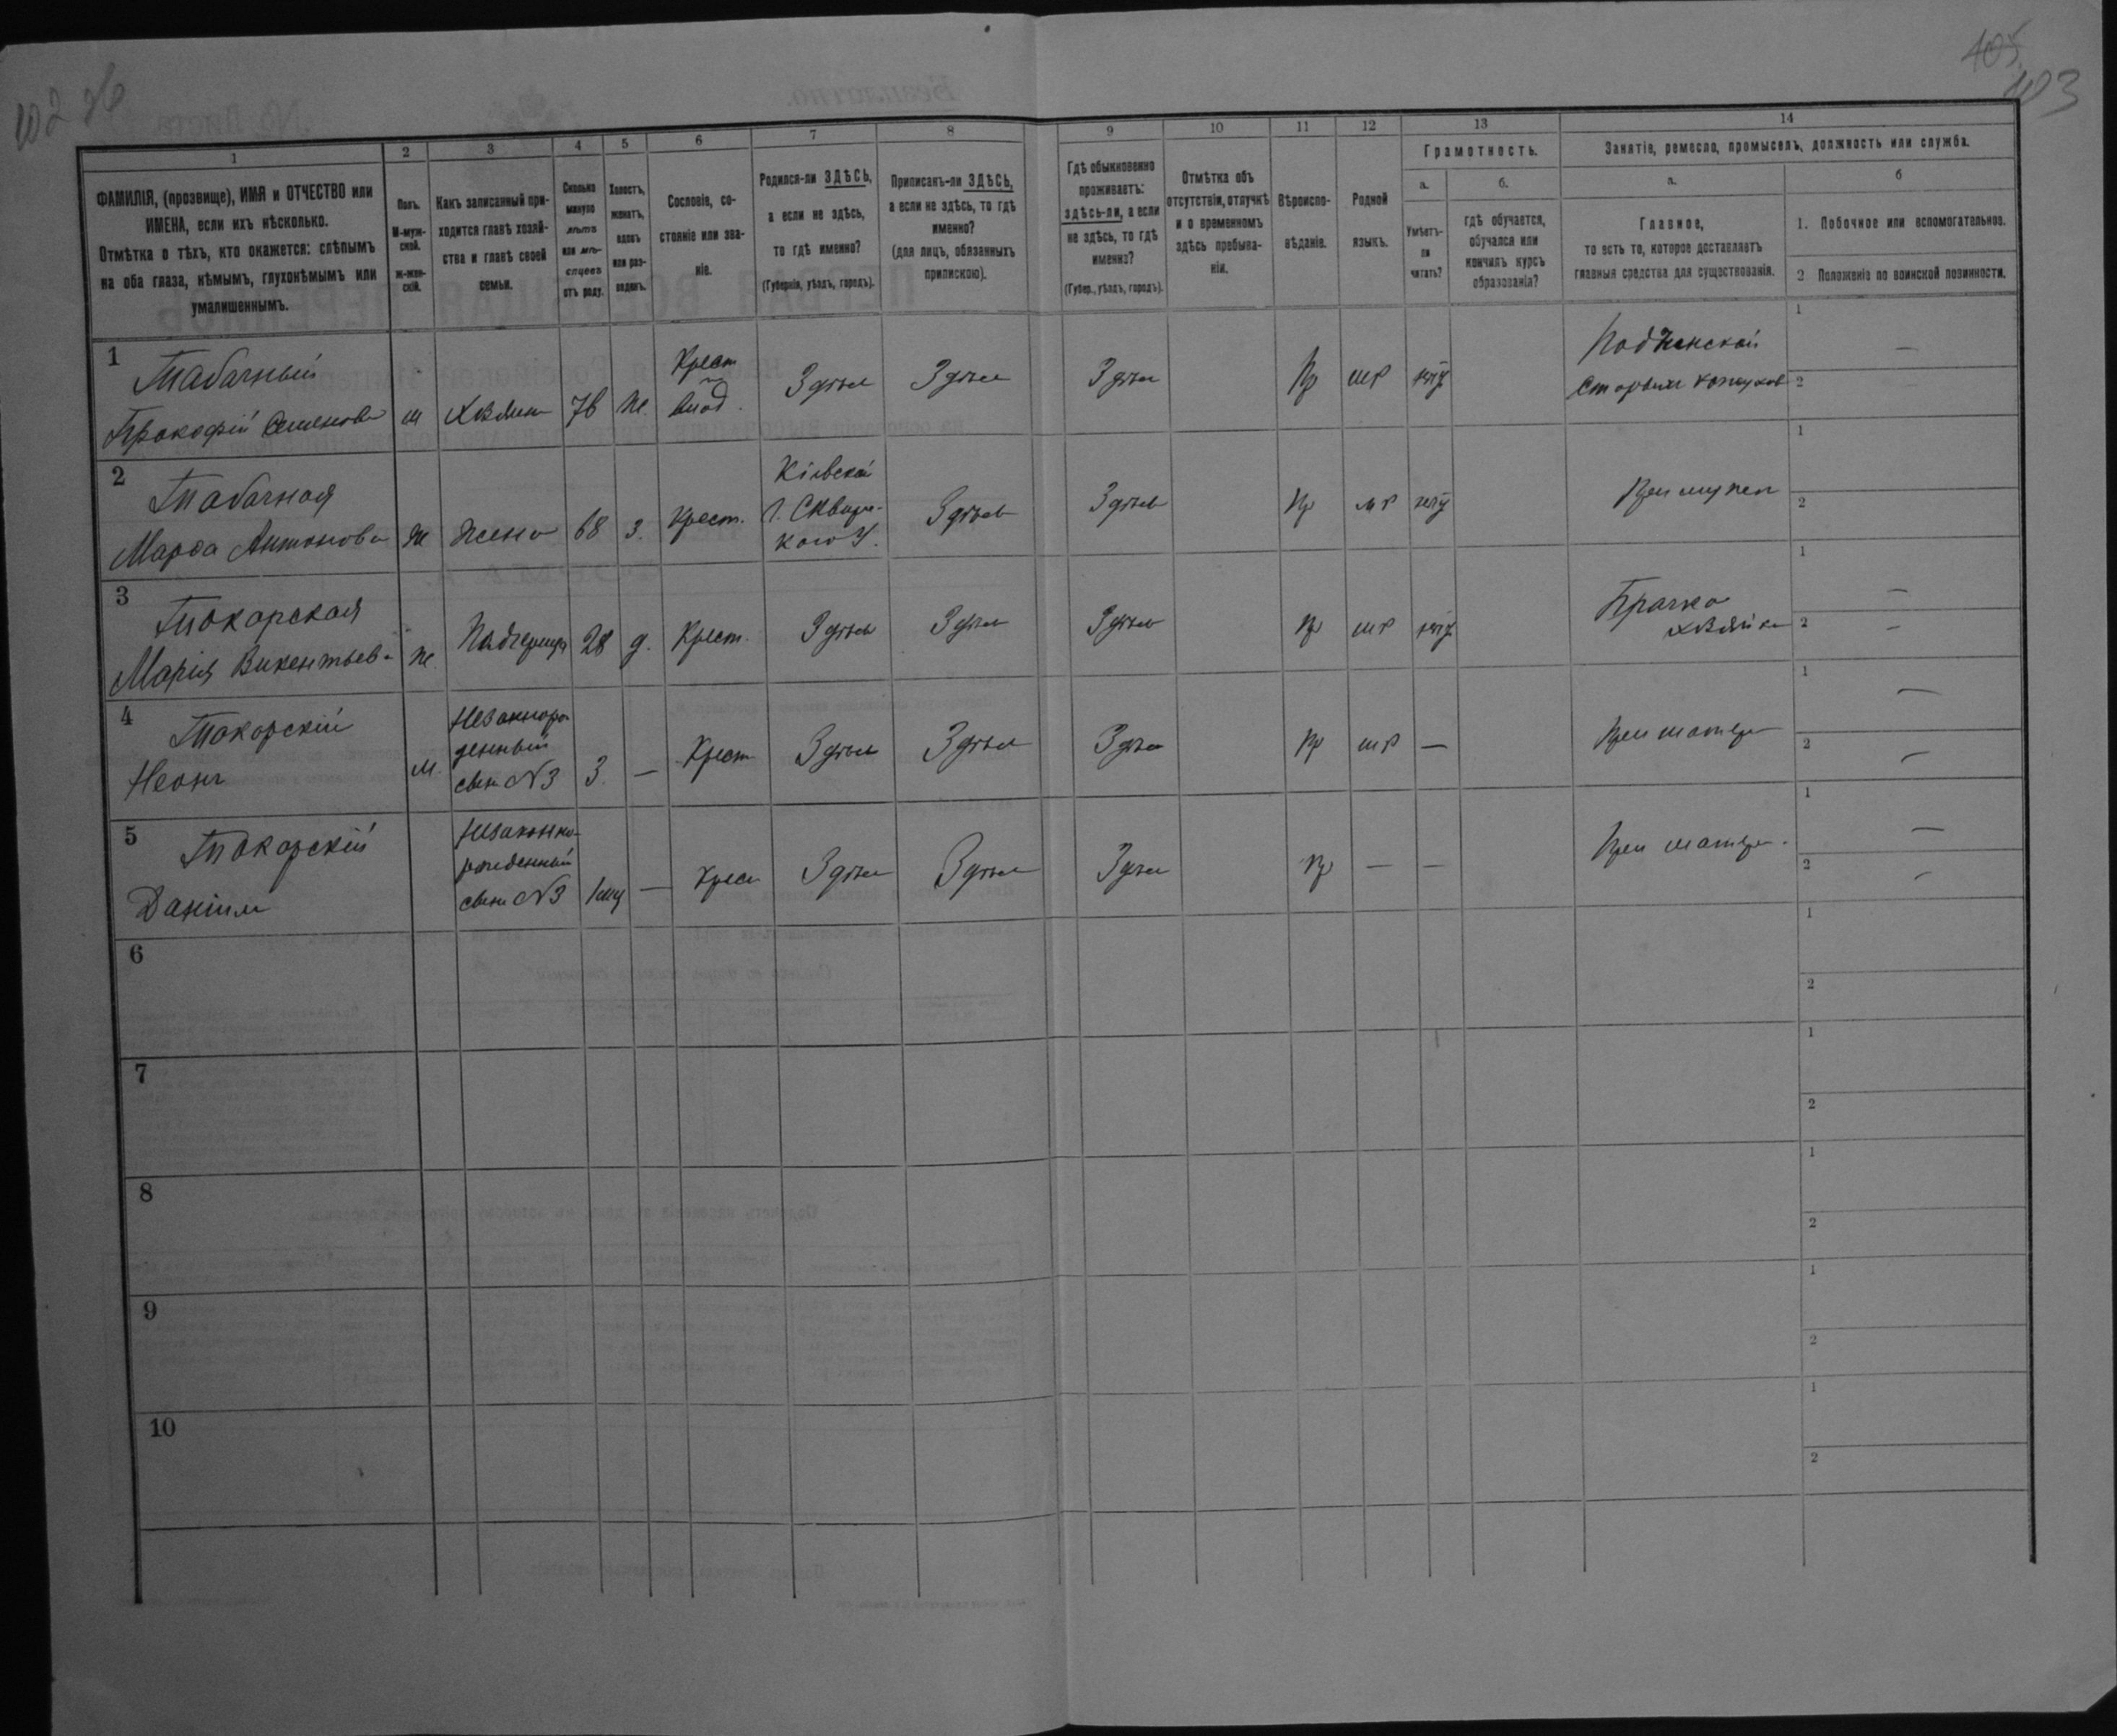 102 об
105
403
1
2
3
4
5
6
7
8
9
10
11
12
13
14
ФАМИЛІЯ, (прозвище), ИМЯ и ОТЧЕСТВО или
ИМЕНА, если ихъ нѣсколько.
Отмѣтка о тѣхъ, кто окажется: слѣпымъ
на оба глаза, нѣмымъ, глухонѣмымъ или
умалишеннымъ.
Полъ.
М-муж-
ской.
ж-жен-
скій.
Какъ записанный при-
ходится главѣ хозяй-
ства и главѣ своей
семьи.
Сколько
минуло
лѣтъ
или мѣ-
сяцевъ
отъ роду.
Холостъ,
женатъ,
вдовъ
или раз-
веденъ.
Сословіе, со-
стояніе или зва-
ніе.
Родился-ли ЗДѢСЬ,
а если не здѣсь,
то гдѣ именно?
(Губернія, уѣздъ, городъ).
Приписанъ-ли ЗДѢСЬ,
а если не здѣсь, то гдѣ
именно?
(для лицъ, обязанныхъ
припискою).
Гдѣ обыкновенно
проживаетъ:
здѣсь-ли, а если
не здѣсь, то гдѣ
именно?
(Губер., уѣздъ, городъ).
Отмѣтка объ
отсутствіи, отлучкѣ
и о временномъ
здѣсь пребыва-
ніи.
Вѣроиспо-
вѣданіе.
Родной
языкъ.
Грамотность.
а.
Умѣетъ-
ли
читать?
б.
гдѣ обучается,
обучался или
кончилъ курсъ
образованія?
Занятіе, ремесло, промыселъ, должность или служба.
а.
Главное,
то есть то, которое доставляетъ
главныя средства для существованія.
б
1. Побочное или вспомогательное.
2 Положеніе по воинской повинности.
1
Табачный
Прокофій Семенова
м
Хозяин
76
ж.
Крест
влад.
Здѣсь
Здѣсь
Здѣсь
Пр
мр
нѣт
1
—
2
2
Табачная
Марѳа Антонова
ж
Жена
68
з.
Крест.
Кіевской
Г. Сквир-
кого У.
Здѣсь
Здѣсь
Пр
мр
нѣт
При мужен
1
2
3
Токарская
Марія Викентьева
ж.
Падчерица
28
д.
Крест.
Здѣсь
Здѣсь
Здѣсь
Пр
мр
нѣт
Прачка
хозяйка
1
—
2
—
4
Токарскій
Неонъ
м.
Незаконоро
денный
сынъ N3
3.
—
Крест
Здѣсь
Здѣсь
Здѣсь
Пр
мр
—
При матери
1
—
2
—
5
Токарскій
Даніил
Незаконно-
рожденный
сынъ N3
1 мц
—
Крест
Здѣсь
Здѣсь
Здѣсь
Пр
—
—
При матери.
1
—
2
—
6
1
2
7
1
2
8
1
2
9
1
2
10
1
2